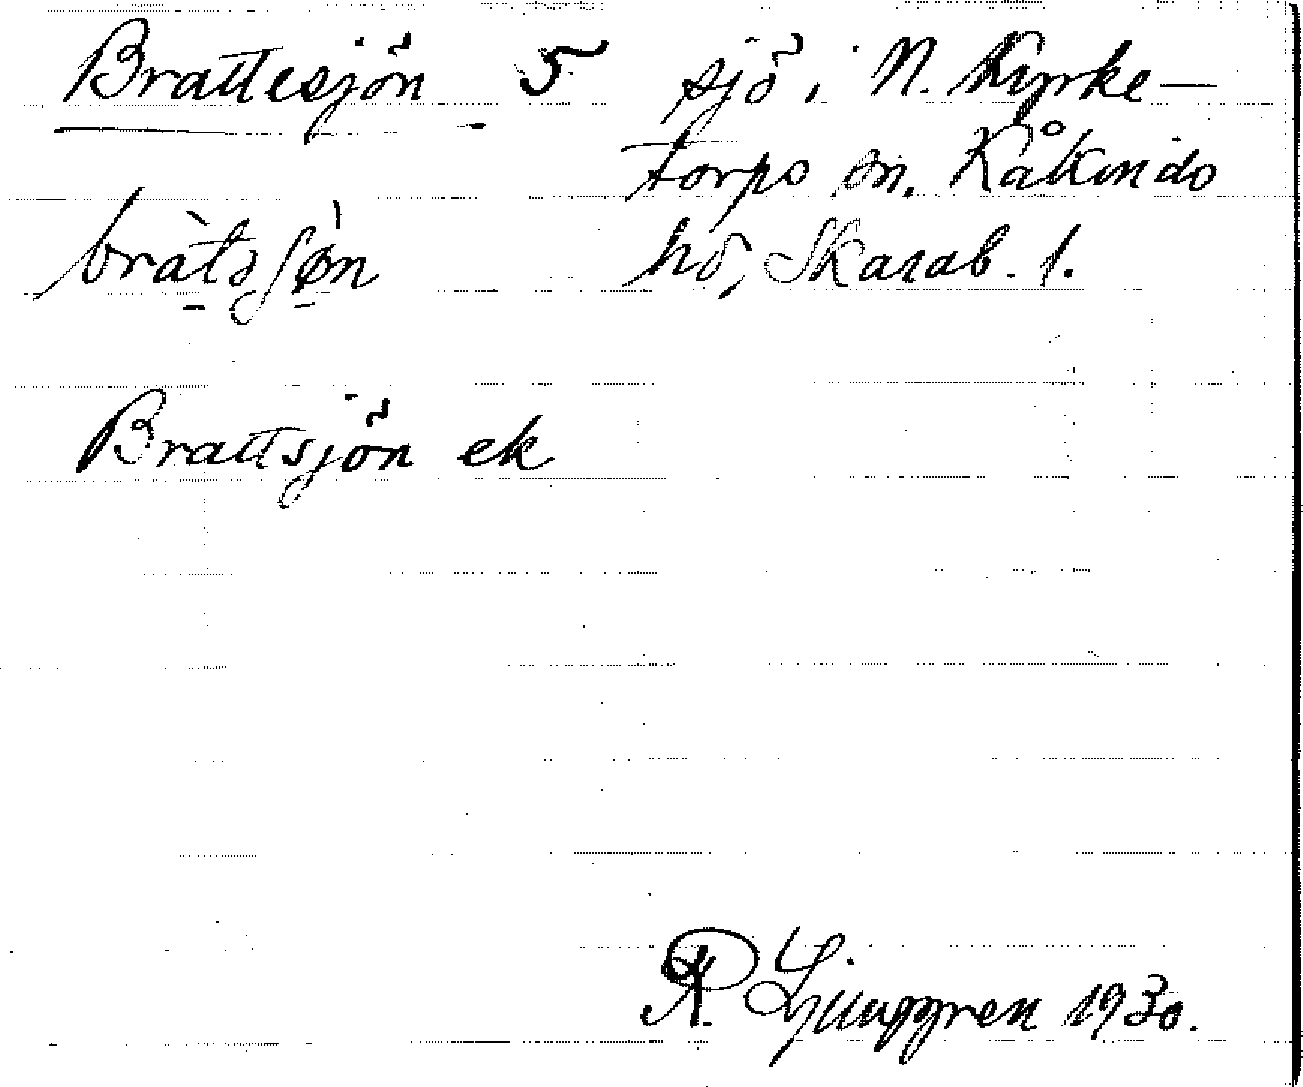 Brattesjön 5 sjö i N. Kyrke-
torps sn. Kåkinds
bràtsjø̀n hd, Skarab. l.
Brattsjön ek
R. Ljunggren 1930.